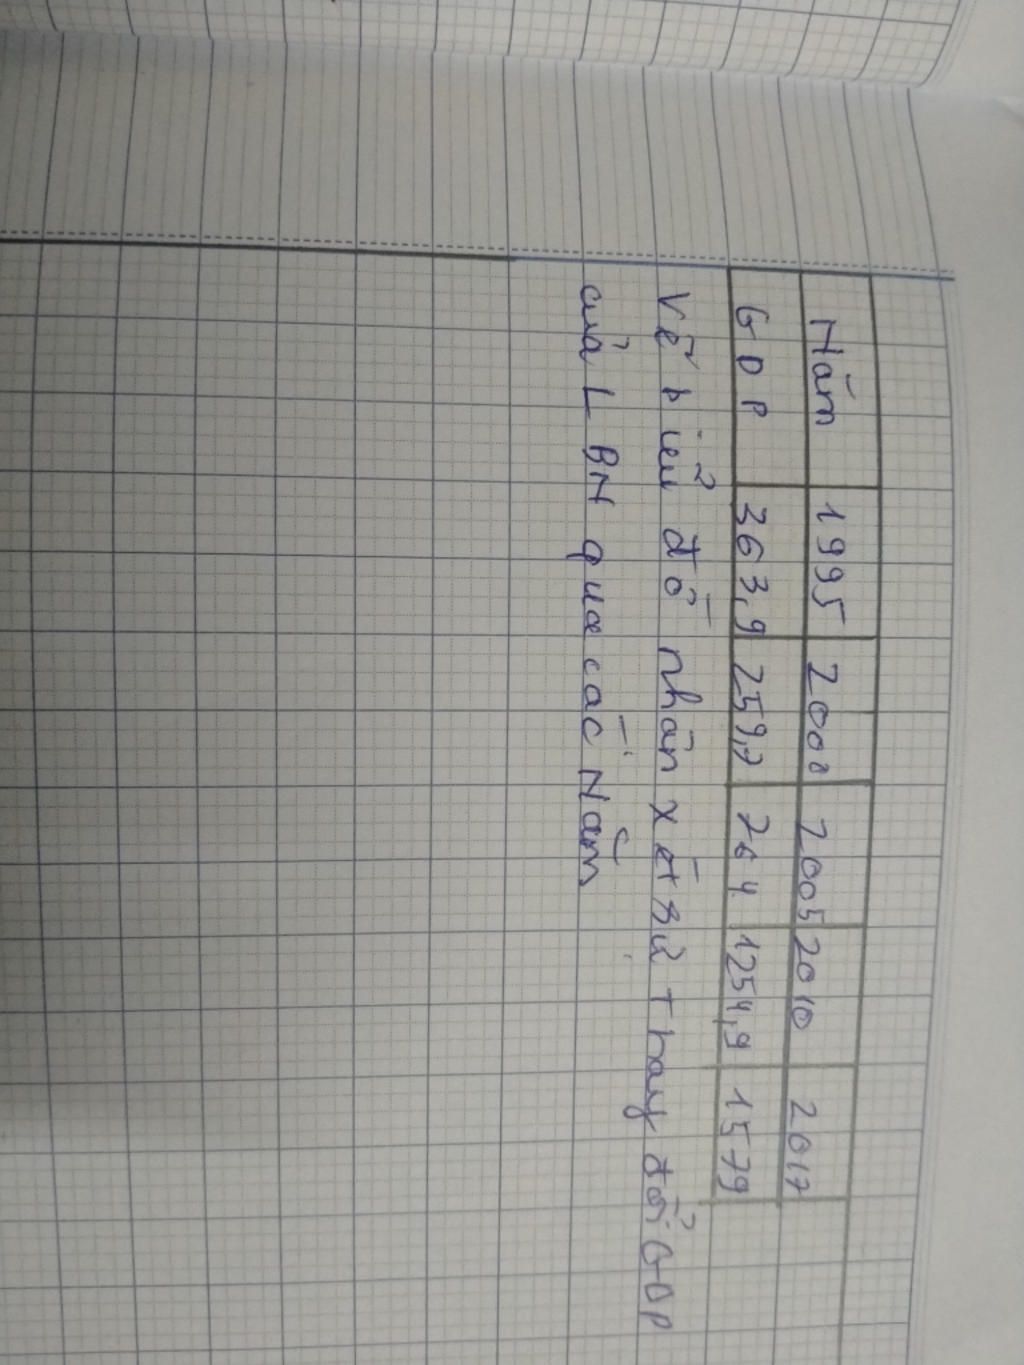 Năm 1995 2000 2005 2010 2017
GDP 363,9 259,7 764 1254,9 1579
Vẽ biểu đồ nhân xét sử thay đổi GDP
của LBN qua các Năm